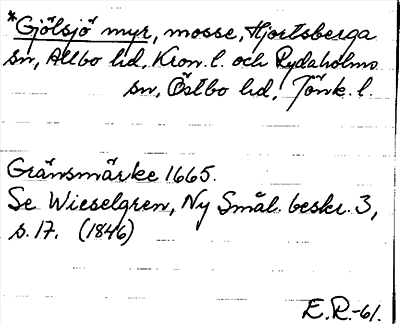 *Gjölsjö myr, mosse, Hjortsberga
sn, Allbo hd, Kron. l. och Rydaholms
sn, Östbo hd, Jönk. l.
Gränsmärke 1665.
Se Wieselgren, Ny Smål. beskr. 3,
s. 17. (1846)
E.R.-61.